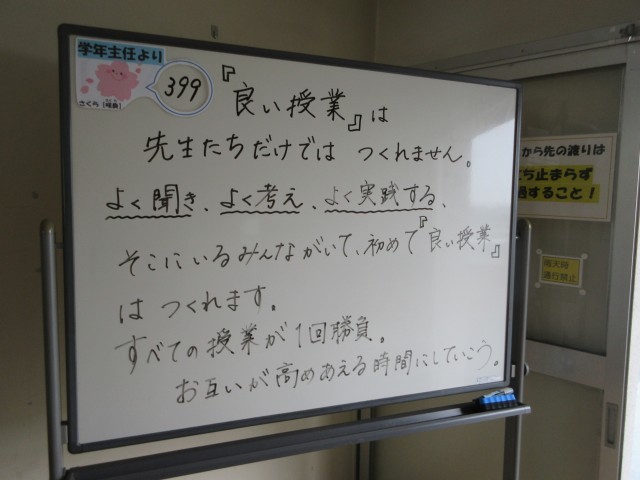 学年主任より
399
『良い授業』は
先生たちだけでは つくれません。
よく聞き、よく考え、よく実践する、
そこにいるみんながいて、初めて『良い授業』
は つくれます。
すべての授業が1回勝負。
お互いが高めあえる時間にしていこう。
から先の渡りは
ち止まらず
すること！
雨天時
通行禁止